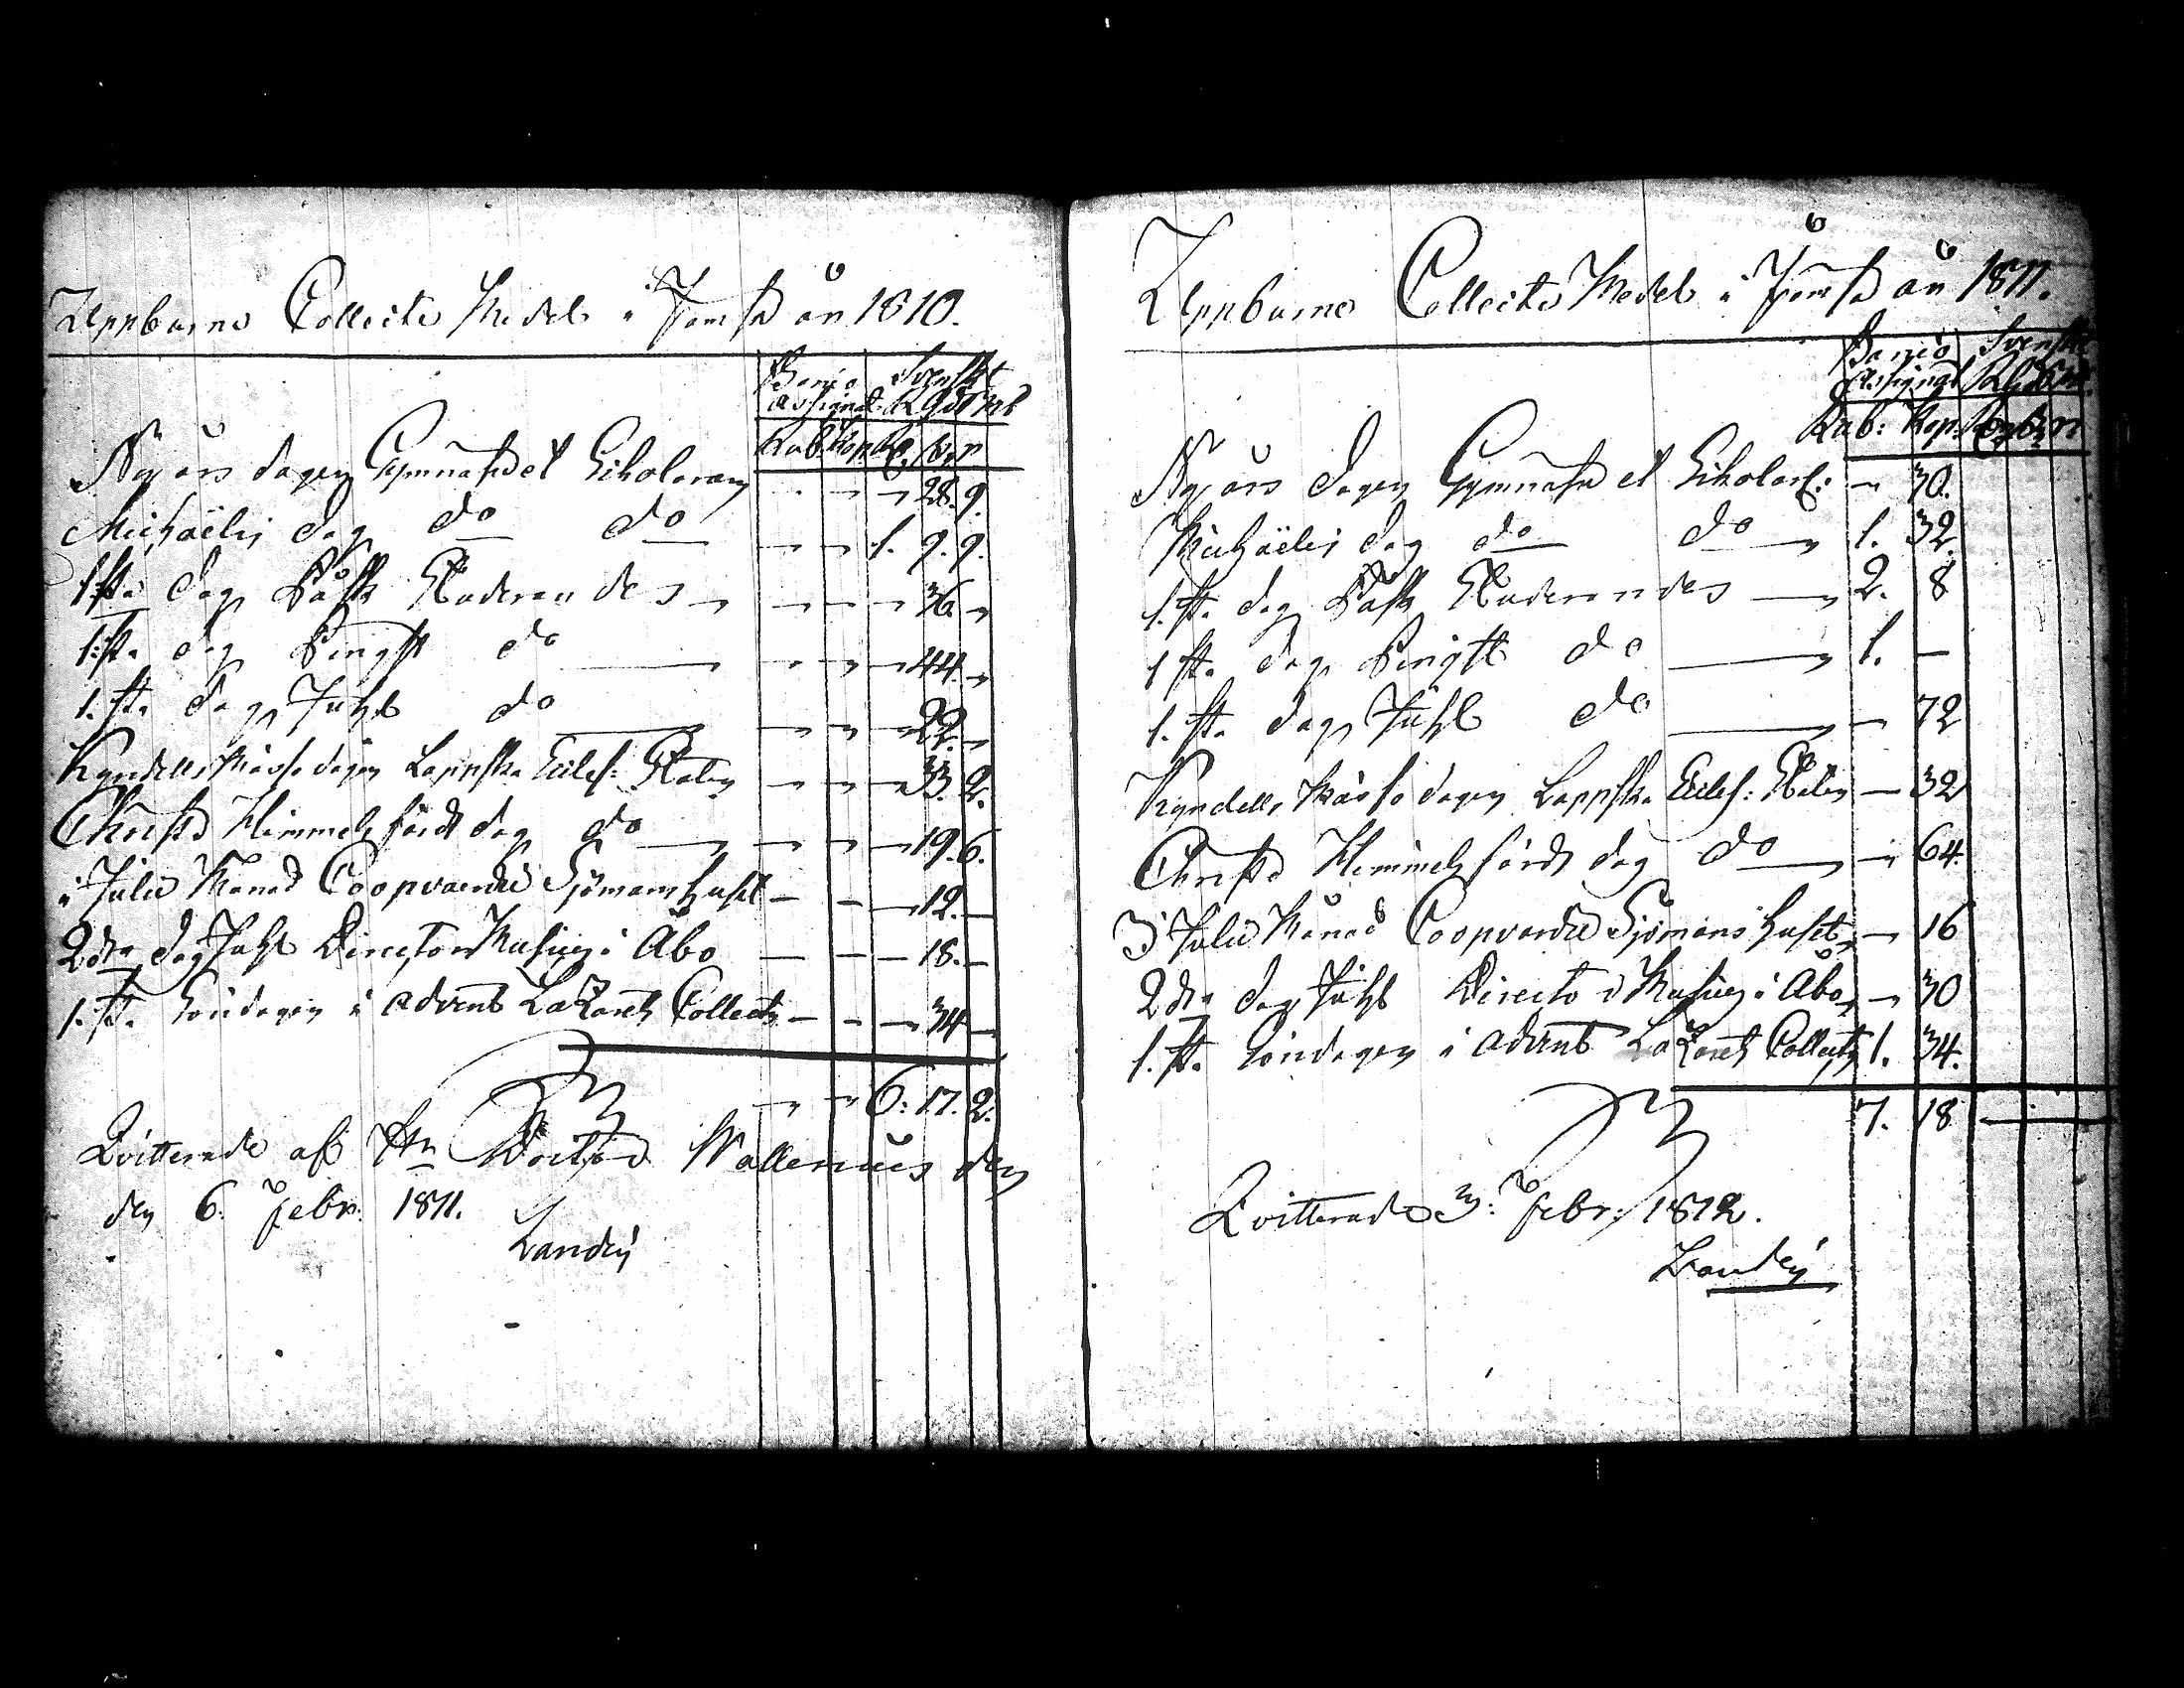 Uppburne Collecte Medel i Jomsa år 1810.
Banco Svenskt
assignat: RGds mt
Rub: Kop: R: ß: r
Nyårs dagen Gymnasii et Scholarum – – – 28. 9.
Michaëlis dag do do – – 1. 9. 9.
1.sta dag Påsk Studerandes – – – 36 –
1.sta dag Pingst do – – – 44. –
1.sta dag Juhl do – – – 22. –
Kyndelsmässo dagen Lappska Eccles: Staten – – – 33. 2.
Christi Himmelsfärds dag do – – – 19. 6.
i Julii Månad Coopvaerdie Sjömans huset – – – 12. –
2dra dag Juhl Director Musices i Åbo – – – 18. –
1.sta Söndagen i Advent Lazarets Collecten – – – 34 –
– – 6: 17. 2.
Qvitterade af Hr Doctor Wallenius den
den 6. Febr: 1811.
Landén
Uppburne Collecte Medel i Jomsa år 1811.
Banco Svenskt
assignat RGds mt
Rub: Kop: R ß r
Nyårs dagen Gymnasii et Scholar: – 30.
Michaëlis dag do do – 1. 32.
1.sta dag Påsk Studerandes – 2. 8
1 sta dag Pingst do – 1. –
1.sta dag Juhl do – 72
Kyndels Mässo dagen Lappska Eccles: Staten – 32
Christi Himmels färds dag do – 64.
I Julii Månad Coopvardie Sjömans huset – 16
2dra dag Juhl Directori Musices i Åbo – 30
1.sta Söndagen i Advent Lazarets Collecten 1. 34.
7. 18 –
Qvitterade 3: Febr: 1812.
Landén